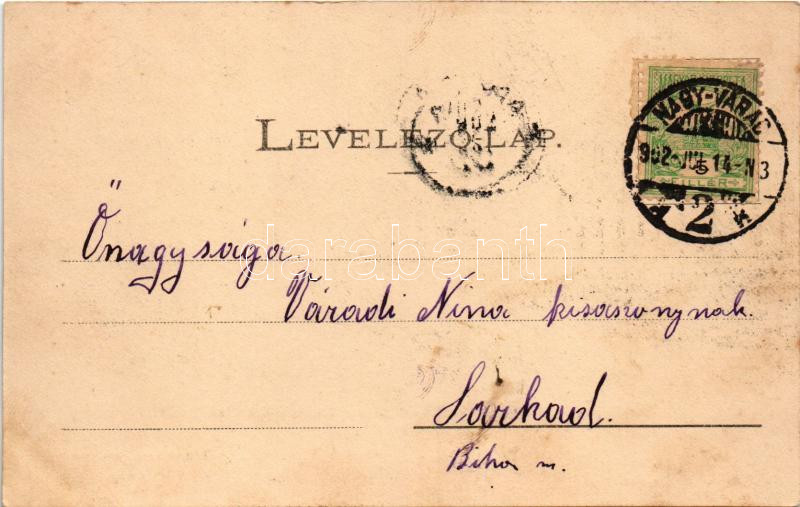 LEVELEZŐ-LAP.
NAGY-VÁRAD
902 JUL. 14-N3
2
5
FILLÉR
Őnagysága
Váradi Nina kisasonynak.
Sarkad.
Bihar m.
darabanth